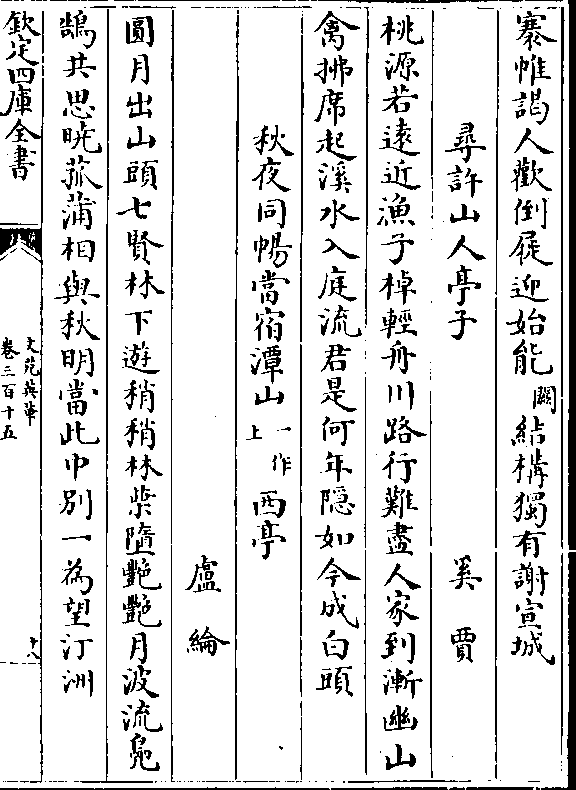 褰帷謁人歡倒屣迎始能闕結構獨有謝宣城
尋許山人亭子 奚賈
桃源若遠近漁子棹輕舟川路行難盡人家到漸幽山
禽拂席起溪水入庭流君是何年隠如今成白頭
秋夜同暢當宿潭山一作上西亭
盧綸
圓月出山頭七賢林下遊稍稍林柴墮艷艷月波流鳬
鵠共思曉菰蒲相與秋明當此中别一為望汀洲
欽定四庫全書
文苑英華
卷三百十五
十八